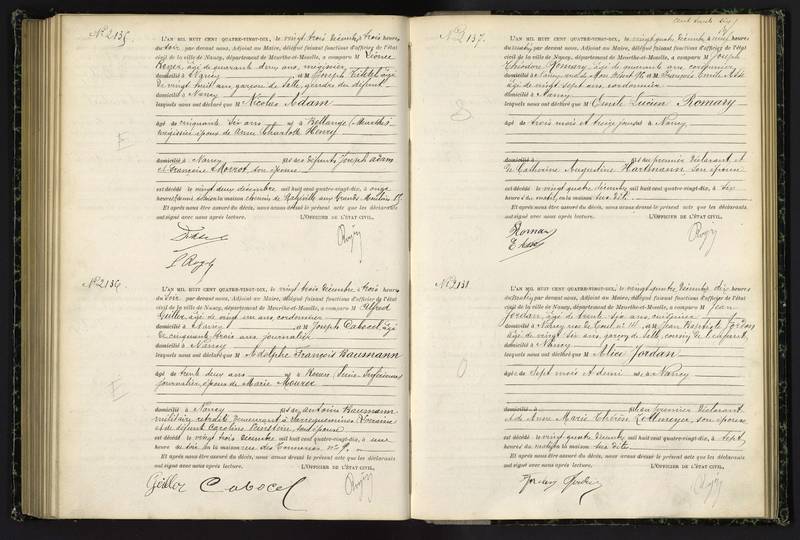 cent trente six
No 2135.
L'AN MIL HUIT CENT QUATRE-VINGT-DIX, le vingt trois Décembre à trois heures
du soir, par devant nous, Adjoint au Maire, délégué faisant fonctions d'officier de l'état
civil de la ville de Nancy, département de Meurthe-et-Moselle, a comparu M
âgé de quarante deux ans, mégissier
domicilié à Nancy et M Joseph âgé
de vingt huit ans, garçon de salle, gendre du défunt
domicilié à Nancy
lesquels nous ont déclaré que M Nicolas Adam
âgé de cinquante six ans né à (Meurthe)
mégissier époux de Anne Charlotte Henry
domicilié à Nancy fils des défunts Joseph Adam
et Françoise son épouse
est décédé le vingt deux décembre mil huit cent quatre-vingt-dix, à onze
heures du soir en la maison chemin de aux Grands Moulins
Et après nous être assuré du décès, nous avons dressé le présent acte que les déclarants
ont signé avec nous après lecture. L'OFFICIER DE L'ÉTAT CIVIL,
No 2136.
L'AN MIL HUIT CENT QUATRE-VINGT-DIX, le vingt trois Décembre à trois heures
du soir, par devant nous, Adjoint au Maire, délégué faisant fonctions d'officier de l'état
civil de la ville de Nancy, département de Meurthe-et-Moselle, a comparu M Alfred
âgé de vingt un ans, cordonnier
domicilié à Nancy et M Joseph Cabocel âgé
de cinquante trois ans journalier
domicilié à Nancy
lesquels nous ont déclaré que M Adolphe François Bausmann
âgé de trente deux ans né à Rouen (Seine Inférieure)
journalier, époux de Marie
domicilié à Nancy fils de Antoine Bausmann
militaire retraité demeurant à Sarreguemines Lorraine
et de défunte Caroline son épouse
est décédé le vingt trois Décembre mil huit cent quatre-vingt-dix, à une
heure du soir en la maison rue des Tanneries no 9.
Et après nous être assuré du décès, nous avons dressé le présent acte que les déclarants
ont signé avec nous après lecture. L'OFFICIER DE L'ÉTAT CIVIL,
Cabocel
No 2137.
L'AN MIL HUIT CENT QUATRE-VINGT-DIX, le vingt quatre Décembre à neuf heures
du matin, par devant nous, Adjoint au Maire, délégué faisant fonctions d'officier de l'état
civil de la ville de Nancy, département de Meurthe-et-Moselle, a comparu M Joseph
Théodore Romary, âgé de quarante ans, cordonnier
domicilié à Nancy et M François Emile
âgé de vingt sept ans, cordonnier
domicilié à Nancy
lesquels nous ont déclaré que M Emile Lucien Romary
âgé de trois mois et treize jours né à Nancy
domicilié à fils du premier déclarant et
de Catherine Augustine Hartmann son épouse
est décédé le vingt quatre décembre mil huit cent quatre-vingt-dix, à six
heures du matin, en la maison sus dite
Et après nous être assuré du décès, nous avons dressé le présent acte que les déclarants
ont signé avec nous après lecture. L'OFFICIER DE L'ÉTAT CIVIL,
Romary
No 2138.
L'AN MIL HUIT CENT QUATRE-VINGT-DIX, le vingt quatre Décembre à dix heures
du matin, par devant nous, Adjoint au Maire, délégué faisant fonctions d'officier de l'état
civil de la ville de Nancy, département de Meurthe-et-Moselle, a comparu M Jean
Jordan, âgé de trente six ans, cuisinier
domicilié à Nancy rue de Toul et M Jean Baptiste Jordan
âgé de vingt six ans, garçon de salle, cousin de l'enfant
domicilié à Nancy
lesquels nous ont déclaré que M Alice Jordan
âgée de sept mois et demi née à Nancy
domicilié à fille du premier déclarant
et de Anne Marie Thérèse son épouse
est décédée le vingt quatre Décembre mil huit cent quatre-vingt-dix, à sept
heures du matin en la maison sus dite
Et après nous être assuré du décès, nous avons dressé le présent acte que les déclarants
ont signé avec nous après lecture. L'OFFICIER DE L'ÉTAT CIVIL,